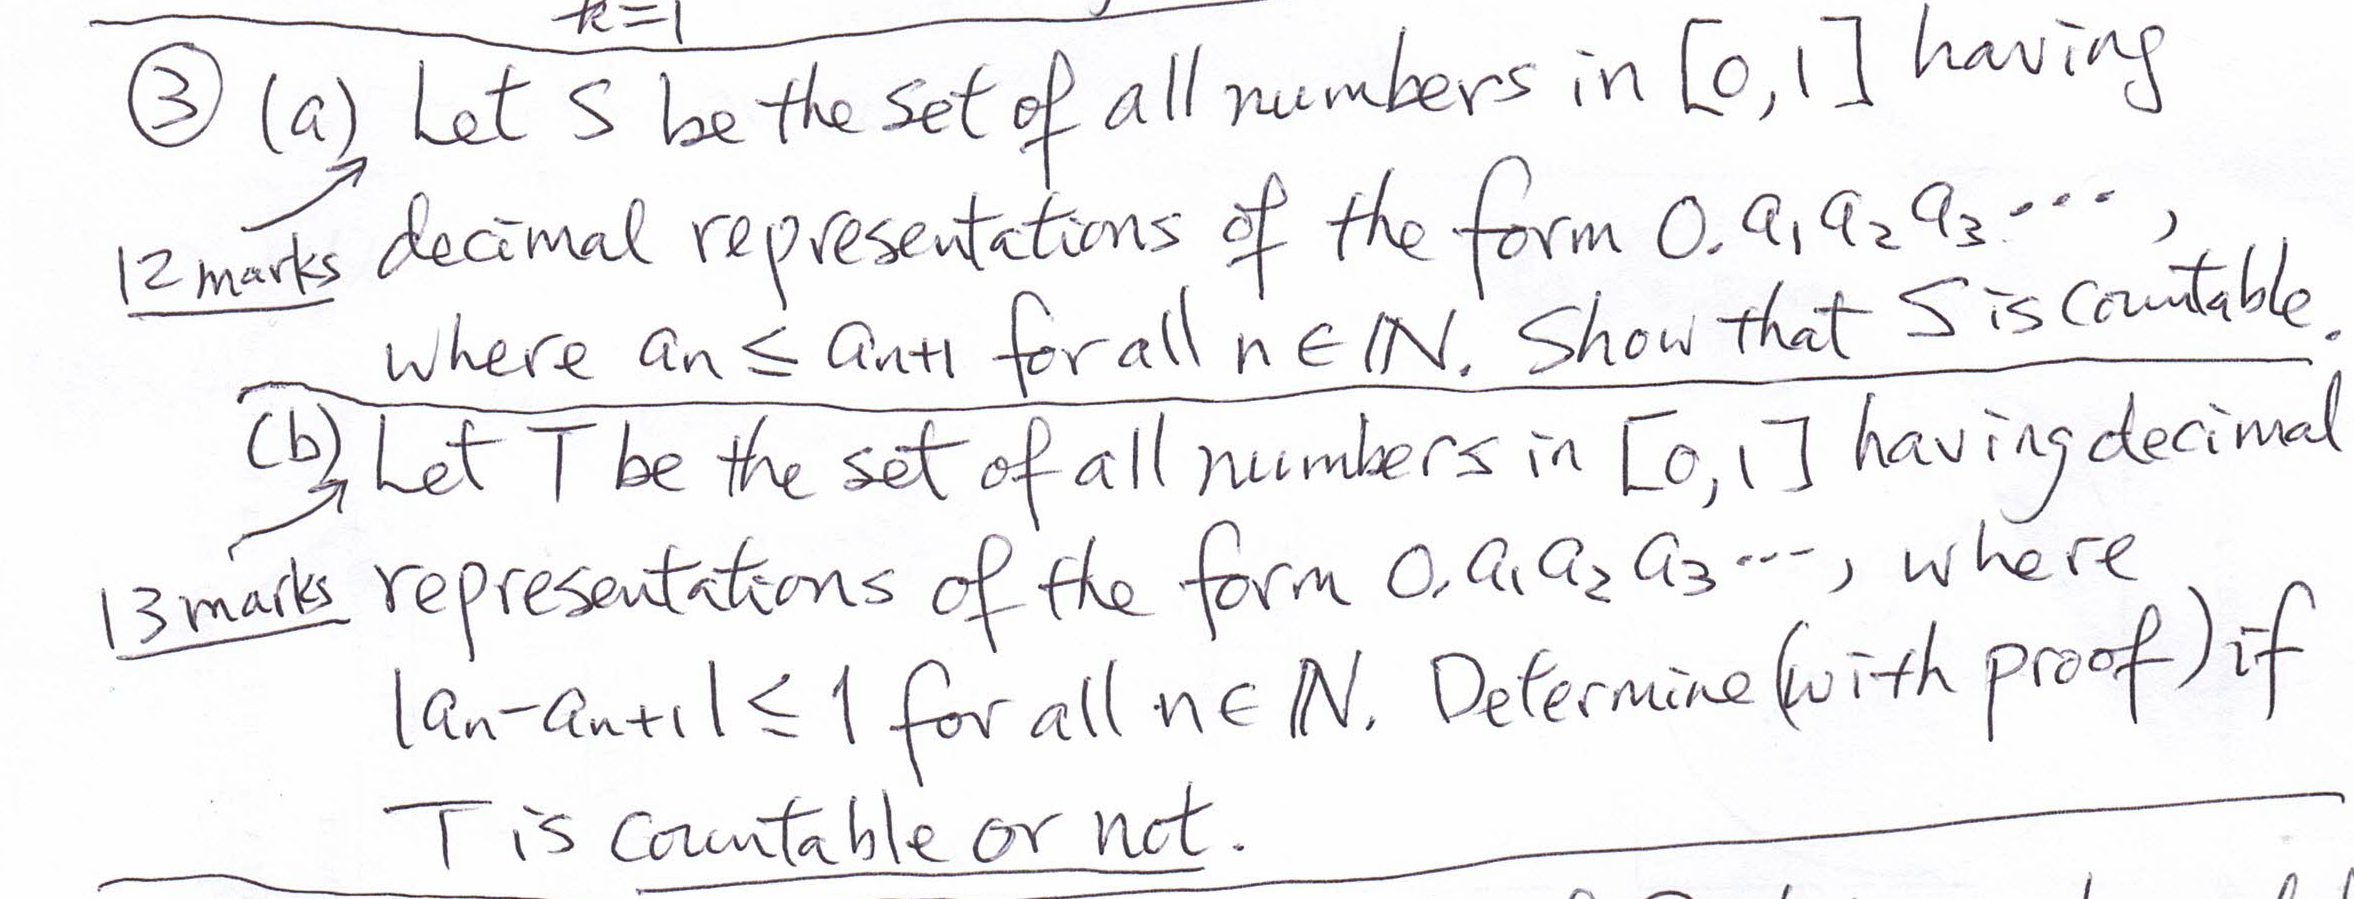 k=1
③ (a) Let S be the set of all numbers in [0,1] having
12 marks decimal representations of the form 0.a₁a₂a₃...,
where aₙ ≤ aₙ₊₁ for all n∈ℕ. Show that S is countable.
(b) Let T be the set of all numbers in [0,1] having decimal
13 marks representations of the form 0.a₁a₂a₃..., where
|aₙ-aₙ₊₁| ≤ 1 for all n∈ℕ. Determine (with proof) if
T is countable or not.